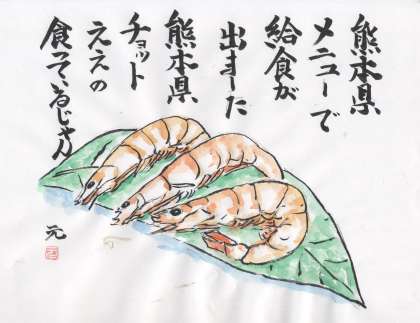 熊本県
メニューで
給食が
出ました
熊本県
チョット
ええの
食っているじゃん
元